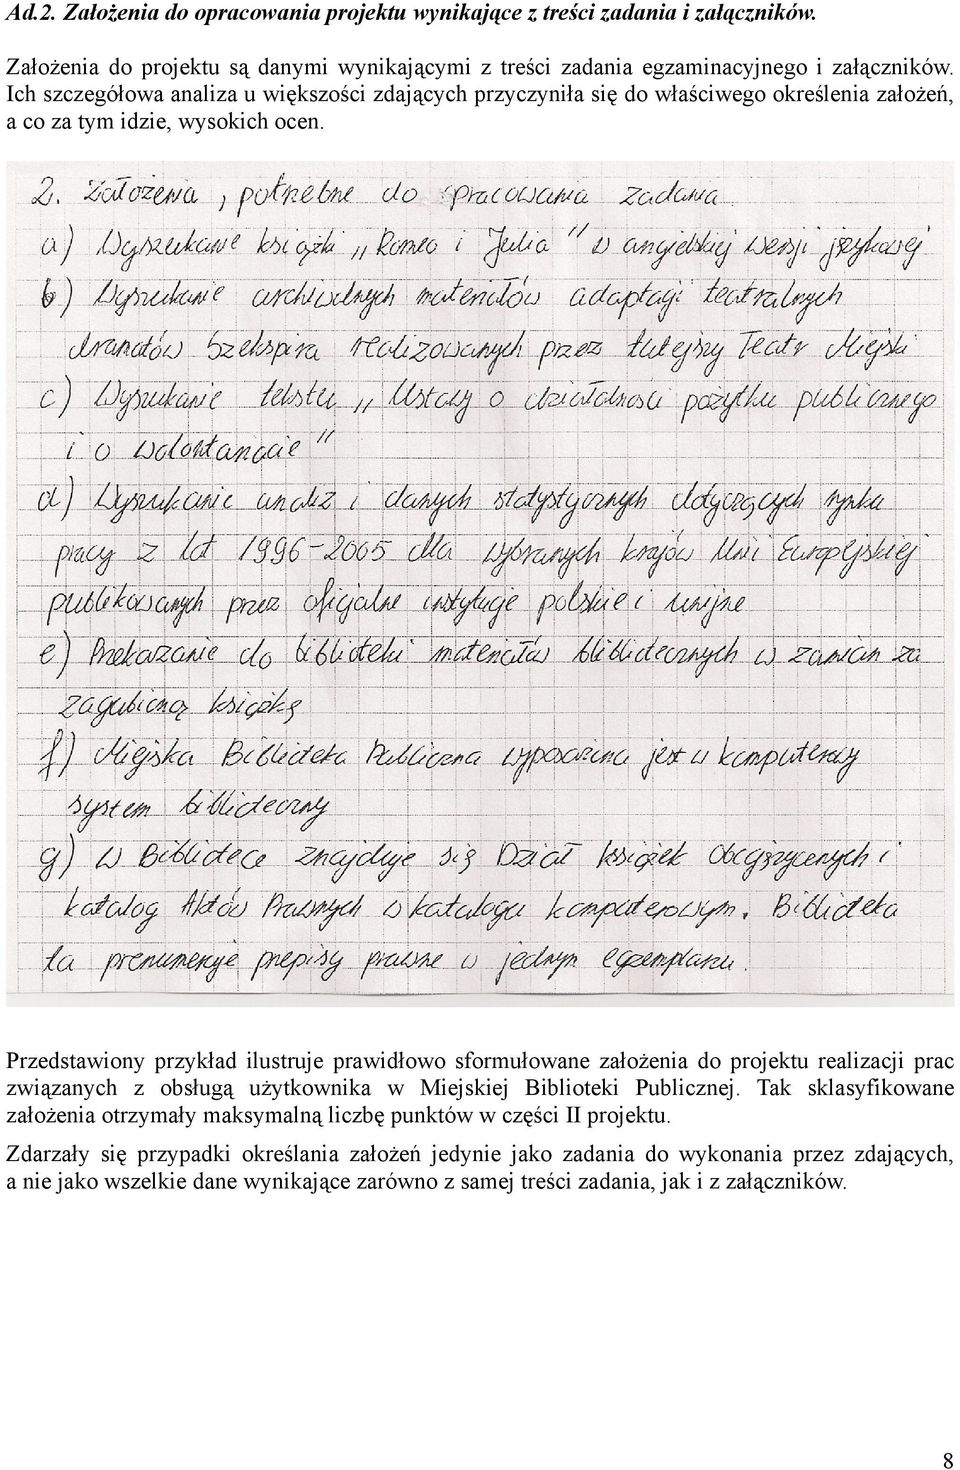 Ad.2. Założenia do opracowania projektu wynikające z treści zadania i załączników.
Założenia do projektu są danymi wynikającymi z treści zadania egzaminacyjnego i załączników.
Ich szczegółowa analiza u większości zdających przyczyniła się do właściwego określenia założeń,
a co za tym idzie, wysokich ocen.
2. Założenia, potrzebne do opracowania zadania
a) Wyszukanie książki „Romeo i Julia" w angielskiej wersji językowej
b) Wyszukanie archiwalnych materiałów adaptacji teatralnych
dramatów Szekspira realizowanych przez tutejszy Teatr Miejski
c) Wyszukanie tekstu „Ustawy o działalności pożytku publicznego
i o wolontariacie"
d) Wyszukanie analiz i danych statystycznych dotyczących rynku
pracy z lat 1996-2005 dla wybranych krajów Unii Europejskiej
publikowanych przez oficjalne instytucje polskie i unijne
e) Przekazanie do biblioteki materiałów bliblidecznych w zamian za
zagubioną książkę
f) Miejska Biblioteka Publiczna wyposażona jest w komputerowy
system biblioteczny
g) W Bibliotece znajduje się Dział książek Obcojęzycznych i
katalog Aktów Prawnych w katalogu komputerowym. Biblioteka
ta prenumeruje przepisy prawne w jednym egzemplarzu.
Przedstawiony przykład ilustruje prawidłowo sformułowane założenia do projektu realizacji prac
związanych z obsługą użytkownika w Miejskiej Biblioteki Publicznej. Tak sklasyfikowane
założenia otrzymały maksymalną liczbę punktów w części II projektu.
Zdarzały się przypadki określania założeń jedynie jako zadania do wykonania przez zdających,
a nie jako wszelkie dane wynikające zarówno z samej treści zadania, jak i z załączników.
8